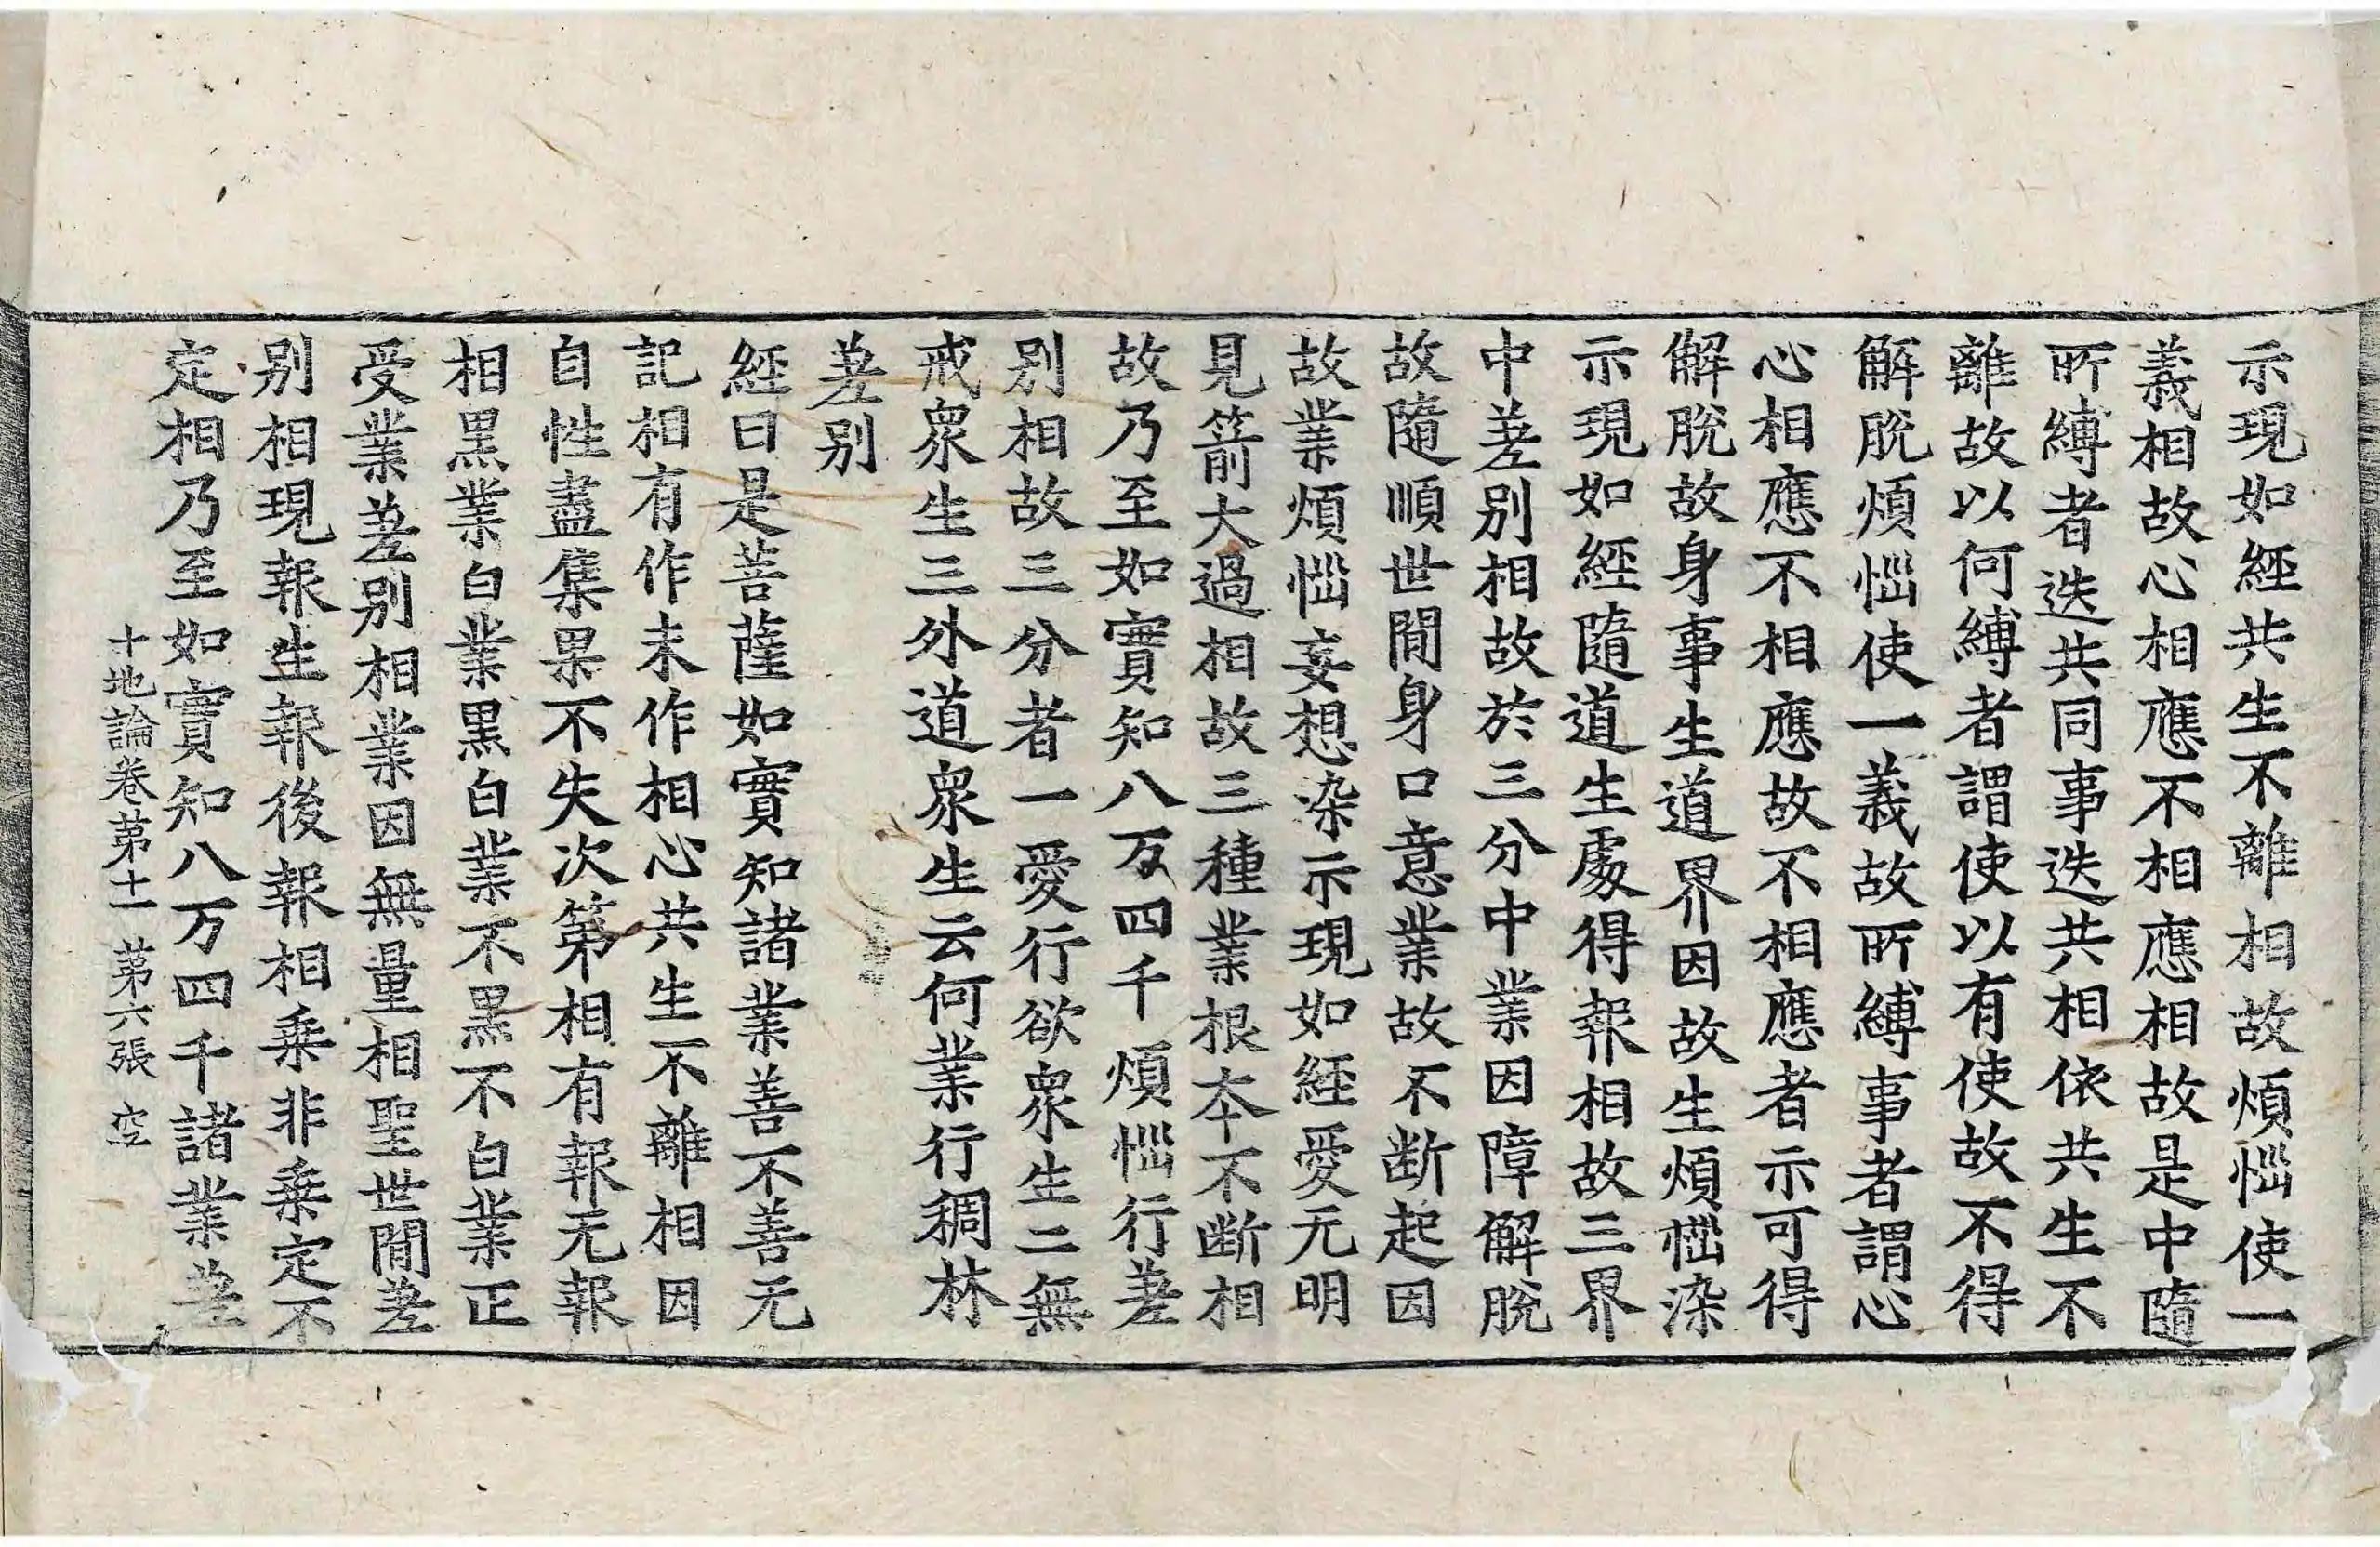 示現如經共生不離相故煩惱使一
義相故心相應不相應相故是中隨
所縛者迭共同事迭共相依共生不
離故以何縛者謂使以有使故不得
解脫煩惱使一義故所縛事者謂心
心相應不相應故不相應者示可得
解脫故身事生道界因故生煩惱染
示現如經隨道生處得報相故三界
中差别相故於三分中業因障解脫
故隨順世間身口意業故不断起因
故業煩惱妄想染示現如經愛无明
見箭大過相故三種業根本不断相
故乃至如實知八万四千煩惱行差
别相故三分者一愛行欲衆生二無
戒衆生三外道衆生云何業行稠林
差别
經曰是菩薩如實知諸業善不善无
記相有作未作相心共生不離相因
自性盡集果不失次第相有報无報
相黒業白業黒白業不黒不白業正
受業差别相業因無量相聖世間差
别相現報生報後報相乗非乗定不
定相乃至如實知八万四千諸業差
十地論卷第十一 第六張 空